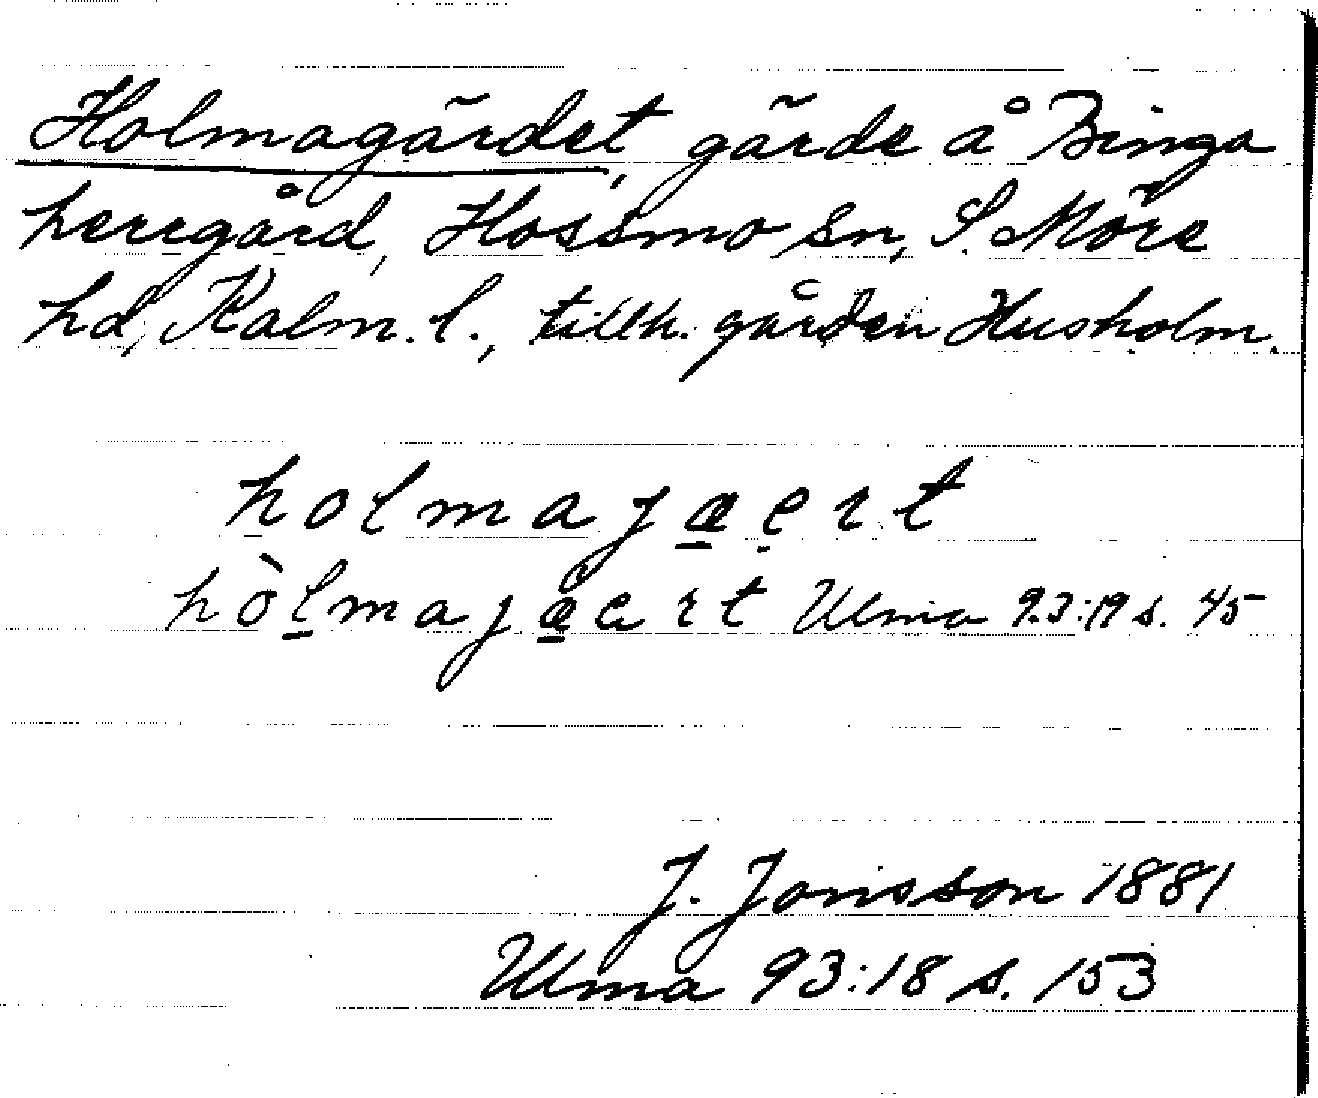 Holmagärdet, gärde å Binga
herrgård, Hossmo sn, S. Möre
hd, Kalm. l., tillh. gården Husholm.
holmajæert
hòlmajæert Ulma 93:19 s. 45
J. Jonsson 1881
Ulma 93:18 s. 153